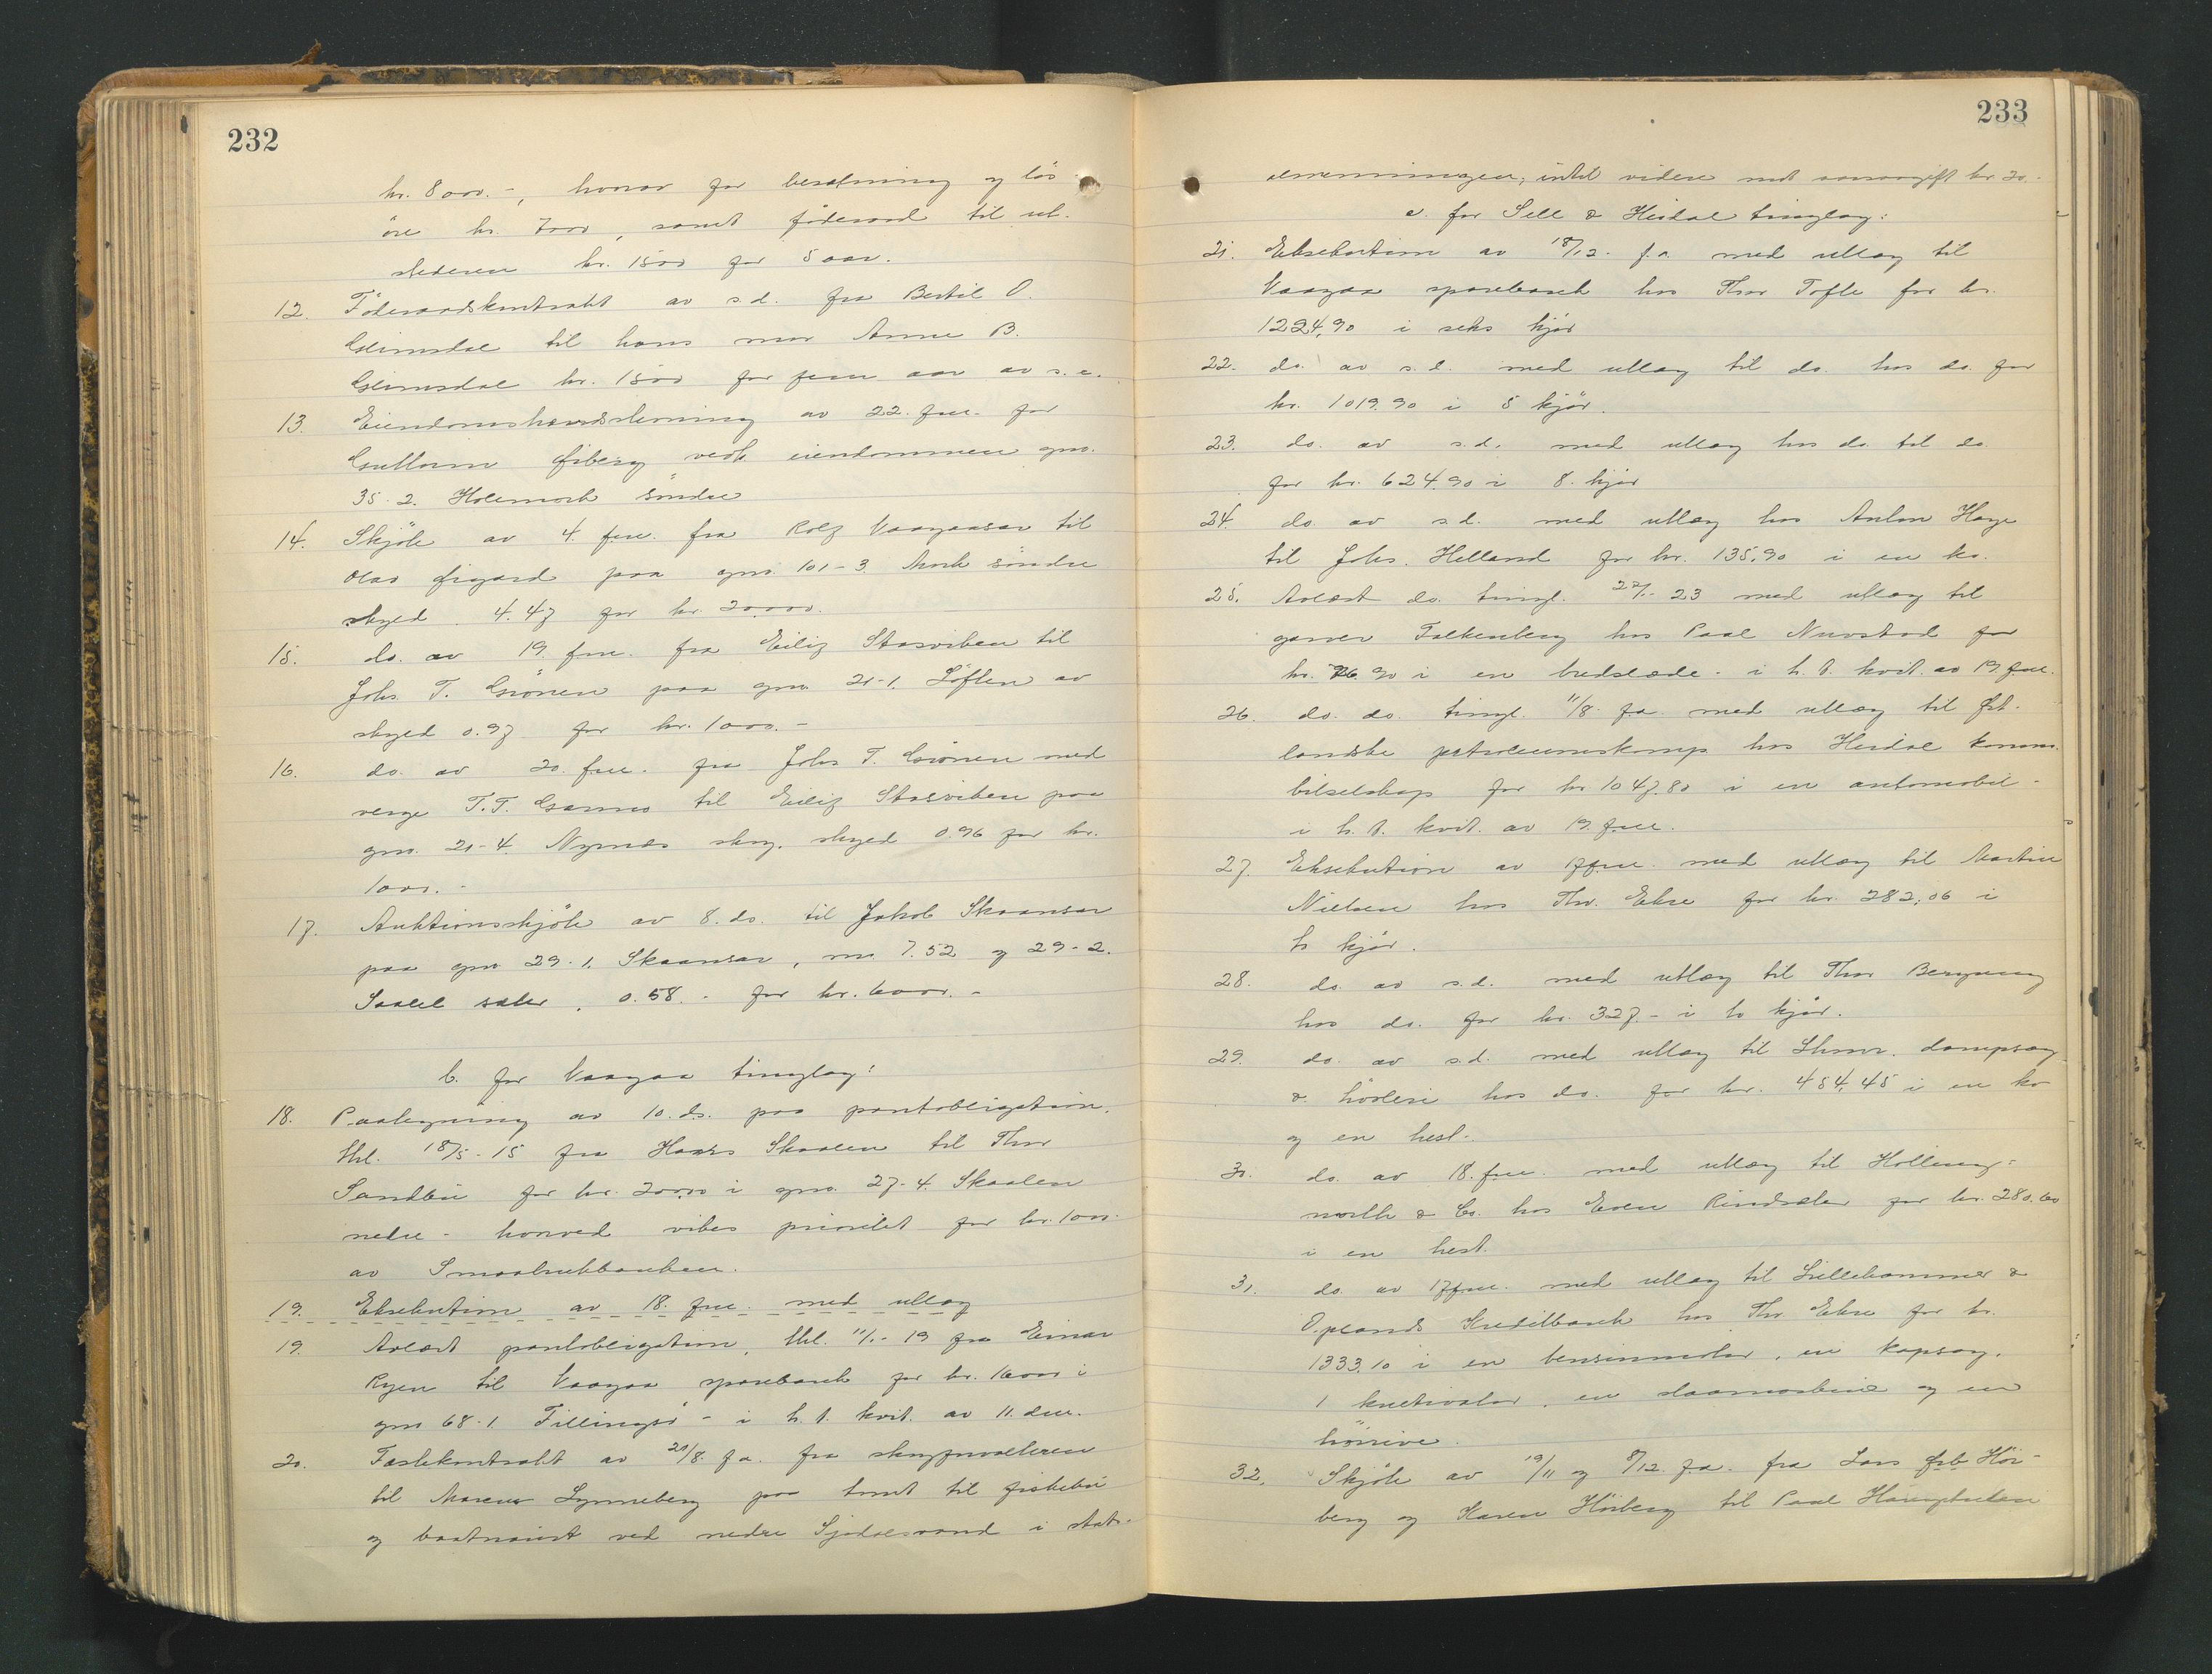 232
kr. 8000.-, hvorav for besætning og løs
øre kr. 7000, samt føderaad til ut-
stederen kr. 1500 for 5 aar.
12. Föderaadskontrakt av s.d. fra Bertil O.
Glimsdal til hans mor Anne B.
Glimsdal kr. 1500 for fem aar av s.e.
13. Eiendomshævdslysning av 22. fm. for
Guttorm Øiberg vedk eiendommen gno.
35-2. Holemork Söndre
14. Skjöte av 4. fm. fra Rolf Vaagaasar til
Olav Øigard paa gno. 101-3. Mork söndre
skyld 4.47 for kr. 20000.
15. do. av 19. fm. fra Eilif Storviken til
Johs. T. Grönen paa gno. 21-1. Löften av
skyld 0.97 for kr. 1000.-
16. do. av 20. fm. fra Johs T. Grönen med
verge T.T. Gammo til Eilif Storviken paa
gno. 21-4. Nymes skog. skyld 0.96 for kr.
1000.-
17. Auktionsskjöte av 8. ds. til Jakob Skaansar
paa gno. 29-1. Skaansar, m. 7.52 og 29-2.
Saalel sæter, 0.58.- for kr. 6000.-
b. for Vaagaa tinglag:
18. Paategning av 10. ds. paa pantobligation.
thl. 18/5-15 fra Hans Skaalen til Thor
Sandbu for kr. 20000 i gno. 27-4. Skaalen
nedre - hvorved vikes prioritet for kr. 1000.
av Smaabrukbanken.
19. Eksekution av 18. fm. med utlæg
19. Avlæst pantobligation, thl. 11/1-19 fra Einar
Ryen til Vaagaa sparebank for kr. 16000 i
gno 68-1. Tillingsö - i h. t. kvit. av 11. dm.
20. Fæstekontrakt av 20/8. f.a. fra skogforvalteren
til Marcus Lynneberg paa tomt til fiskebu
og baatnaust ved nedre Sjodalsvand i stats-
233
almenningen; intet videre mot aarsavgift kr. 20.-
c. for Sell & Heidal tinglag:
21. Eksekution av 18/12. f.a. med utlæg til
Vaagaa sparebank hos Thor Tofte for kr.
1224,90 i seks kjör
22. do. av s.d. med utlæg til do. hos do. for
kr. 1019.90 i 5 kjör.
23. do. av s.d. med utlæg hos do. til do.
for kr. 624.90 i 8. kjör
24. do av s.d. med utlæg hos Anton Hage
til Johs. Helland for kr. 135,90 i en ko.
25. Avlæst do. tingl. 27/1-23 med utlæg til
garver Falkenberg hos Paal Nustad for
kr. 76.90 i en bredslæde - i h. t. kvit. av 19. fm.
26. do. do. tingl. 11/8. f.a. med utlæg til Øst-
landske petroleumskomp. hos Heidal komm.
bilselskap for kr 1047.80 i en automobil -
i h. t. kvit. av 19. fm.
27. Eksekution av 17 fm. med utlæg til Martin
Nielsen hos Thv. Ekre for kr. 282,06 i
to kjör.
28. do. av s.d. med utlæg til Thor Bergseng
hos do. for kr. 327.- i to kjör.
29. do. av s.d. med utlæg til Lhmr. dampsag
& hövleri hos do. for kr. 454,45 i en ko
og en hest.
30. do. av 18. fm. med utlæg til Holling-
worth & Co. hos Even Rindsæter for kr. 280.60
i en hest.
31. do. av 17 fm. med utlæg til Lillehammer &
Oplands Kreditbank hos Thv. Ekre for kr.
1333,10 i en bensinmotor, en kapsag,
1 kultivator, en slaamaskine og en
höirive.
32. Skjöte av 19/11 og 8/12. f.a. fra Lars Hör-
berg og Karen Hörberg til Paal